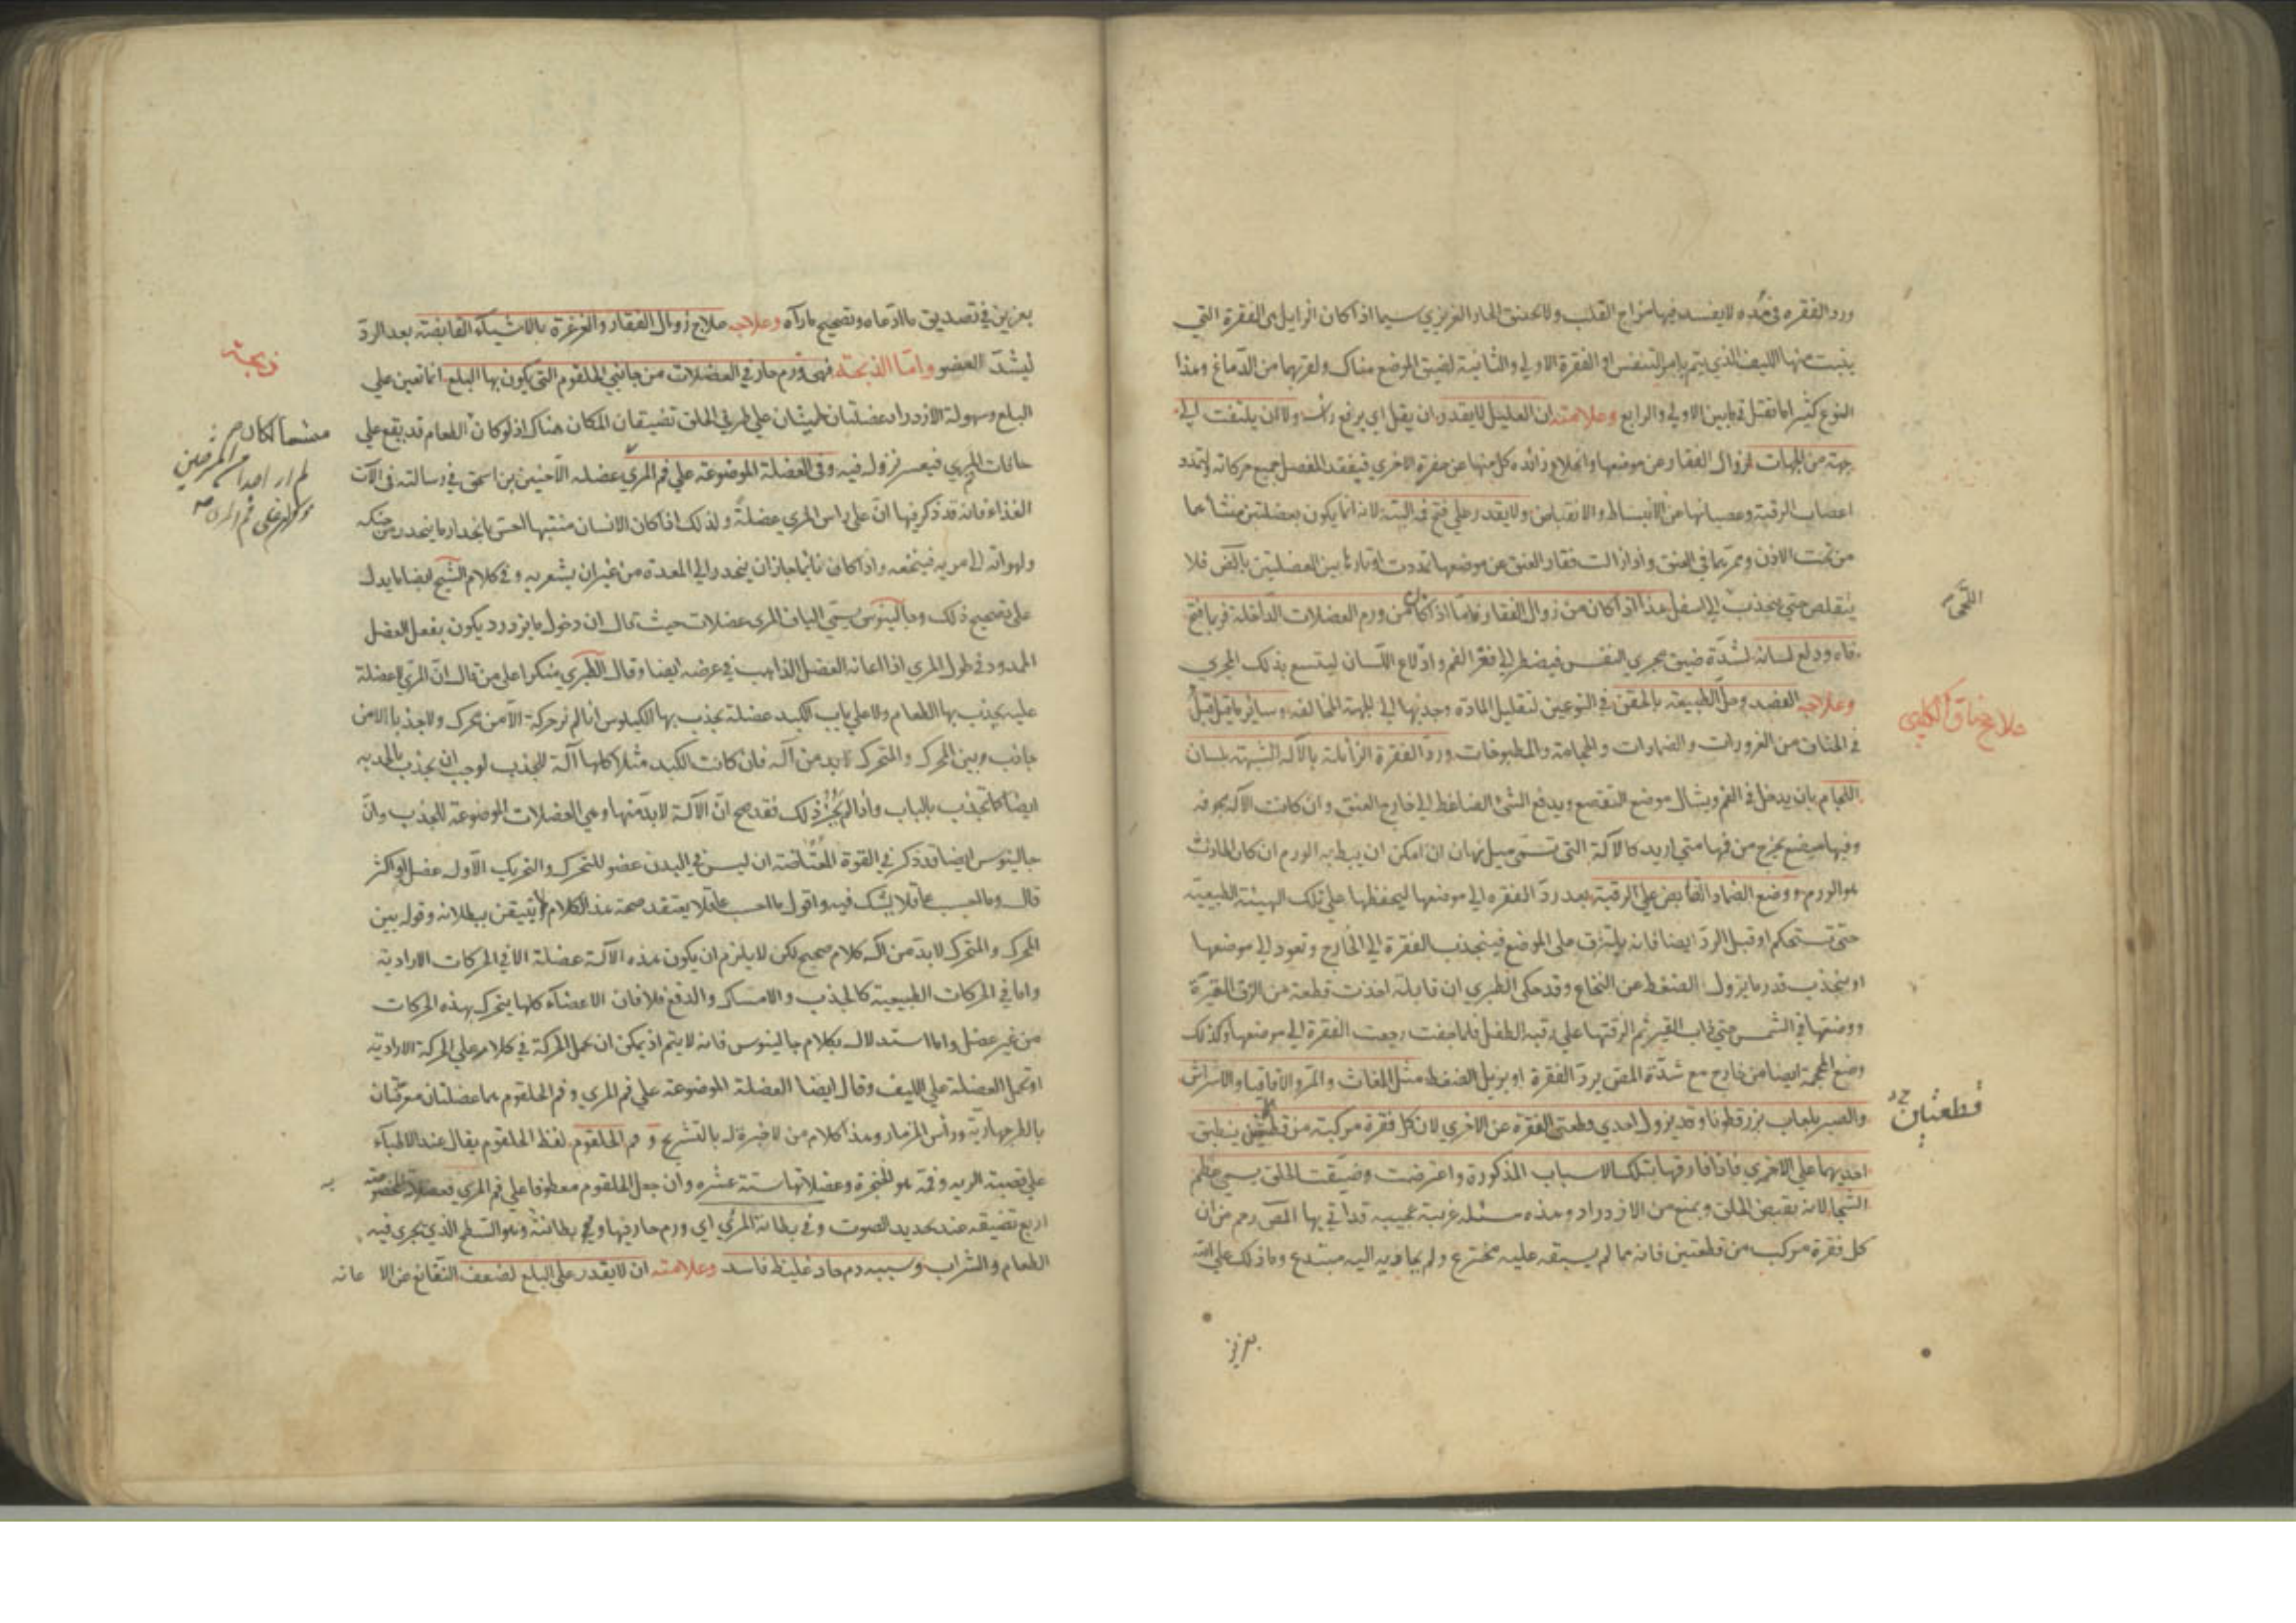 ورد الفقره فى هذه لا يفسد فيها مزاج القلب ولا يختنق الحار الغريزي سيما اذا كان الزايل هى الفقرة التي
ينبت منها الليف الذي يتم به امر التنفس او الفقرة الاولي والثانية لضيق الموضع هناك ولقربهما من الدماغ وهذا
النوع كثيرا ما تقتل فيما بين الاولي والرابع وعلامته ان العليل لا يقدر ان يقل اي يرفع رأسه ولا ان يلتفت الي
جهة من الجهات لزوال الفقار عن موضعها وانخلاع زائده كل منها عن حفرة الاخري فيفقد المفصل جميع حركاته ولتمدد
اعصاب الرقبة وعصيانها عن الانبساط والانقباض ولا يقدر علي فتح فمه البتة لانه انما يكون بعضلتين منشأهما
من تحت الاذن وممرهما في العنق واذا زالت فقار العنق عن موضعها تمددت اوتارها بين العضلتين بالعنق فلا
يتقلص حتي ينجذب الي اسفل هذا اذا كان من زوال الفقار واما اذا كان من ورم العضلات الداخلة فربما فتح
فاه ودلع لسانه لشدة ضيق مجري النفس فيضطر الي فغر الفم وادلاع اللسان ليتسع بذلك المجري
وعلاجه الفصد وحل الطبيعة بالحقن في النوعين لتقليل المادة وجذبها الي الجهة المخالفه وسائر ما قيل قبل
في الخناق من الغرورات والضمادات والحجامة والمطبوخات ورد الفقرة الزائلة بالآلة الشبيهة بلسان
اللجام بان يدخل في الفم ويشال موضع التقصع ويدفع الشئ الضاغط الي خارج العنق وان كانت الآلة مجوفه
وفيها مبضع يخرج من فمها متي اريد كالآلة التي تسمي ميل نهان ان امكن ان يبط به الورم ان كان الحادث
هو الورم ووضع الضماد القابض علي الرقبة بعد رد الفقره الي موضعها ليحفظها علي تلك الهيئة الطبيعية
حتي تستحكم او قبل الرد ايضا فانه يلتزق على الموضع فينجذب الفقرة الي الخارج وتعود الي موضعها
او ينجذب قدر ما يزول الضغط عن النخاع وقد حكي الطبري ان قابلة اخذت قطعة من الزق المقيرة
ووضعتها في الشمس حتي ذاب القير ثم الزقتها علي رقبة الطفل فلما جفت رجعت الفقرة الي موضعها وكذلك
وضع المحجمة ايضا من خارج مع شدة المص يرد الفقرة او يزيل الضغط مثل المغاث والمر والاقاقيا والاشراش
والصبر بلعاب بزر قطونا وقد يزول احدي قطعتي الفقرة عن الاخري لان كل فقرة مركبة من ينطبق
احديهما علي الاخري فاذا فارقها بتلك الاسباب المذكورة واعترضت وضيقت الحلق يسمي عظم
الشجا لانه يقبض الحلق ويمنع من الازدراد وهذه مسئله غريبة عجيبه قد اتي بها المص رحمه من ان
كل فقرة مركب من قطعتين فانه مما لم يسبقه عليه مخترع ولم يحاذيه اليه مبتدع وما ذلك علي الله
بعزيز
اللحي
علاج خناق الكلبي
قطعتين
بعزيز في تصديق ما ادعاه وتصحيح ما رآه وعلاجه علاج زوال الفقار والغرغرة بالاشياء القابضة بعد الرد
ليشد العضو واما الذبحة فهي ورم حار في العضلات من جانبي الحلقوم التي يكون بها البلع انما تعين علي
البلع وسهولة الازدراد عضلتان علي طرفي الحلق تضيقان المكان هناك اذ لو كان الطعام قد يقع علي
حافات المري فيعسر نزوله فيه وفي العضلة الموضوعة علي فم المري عضله الا حنين بن اسحق في رسالته في الآت
الغذاء فانه قد ذكر فيها ان علي راس المري عضلة ولذلك اذا كان الانسان منتبها احس بانحدار ما ينحدر من حنكه
ولهواته الي مريه فيمنعه واذا كان نائما جاز ان ينحدر الي المعدة من غير ان يشعر به وفي كلام الشيخ ايضا ما يدل
علي تصحيح ذلك وجالينوس يسمي الياف المري عضلات حيث قال ان دخول ما يزدرد يكون بفعل العضل
الممدود في طول المري اذا اعانه العضل الذاهب في عرضه ايضا وقال الطبري منكرا علي من قال ان المري عضلة
عليه يجذب بها الطعام ولا علي باب الكبد عضلة يجذب بها الكيلوس انا لم نر حركة الا من محرك ولا جذبا الا من
جاذب وبين المحرك والمتحرك لابد من آلة فان كانت الكبد مثلا كلها آلة للجذب لوجب ان يجذب بالحدبه
ايضا كما تجذب بالباب واذا لم يجز ذلك فقد صح ان الآلة لابد منها وهي العضلات الموضوعة للجذب وان
جالينوس ايضا قد ذكر في القوة ان ليس في البدن عضو للتحرك والتحريك الا وله عضل او اكثر
قال وما احسب عاقلا يشك فيه واقول ما احسب عاقلا يعتقد صحة هذا الكلام الا يتيقن ببطلانه وقوله بين
المحرك والمتحرك لابد من آلة كلام صحيح لكن لا يلزم ان يكون هذه الآلة عضلة الا في الحركات الارادية
واما في الحركات الطبيعية كالجذب والامساك والدفع فلا فان الاعضاء كلها يتحرك بهذه الحركات
من غير عضل واما استدلاله بكلام جالينوس فانه لا يتم اذ يمكن ان تحمل الحركة في كلامه علي الحركة الارادية
او تحمل العضلة علي الليف وقال ايضا العضلة الموضوعة علي فم المري وفم الحلقوم هما عضلتان معرفتان
بالطرجهارية ورأس المزمار وهذا كلام من لا خبرة له بالتشريح وفم الحلقوم لفظ الحلقوم يقال عند الاطباء
علي قصبة الرية وفمه هو الحنجرة وعضلاتها ستة عشره وان جعل الحلقوم معطوفا علي فم المري فعضلة
اربع تضيقه عند تحديد الصوت وفي بطانة المري اي ورم حار فيها وهي بطانته وهو السطح الذي يجري فيه
الطعام والشراب وسببه دم حاد غليظ فاسد وعلامته ان لا يقدر علي البلع لضعف النغانغ عن الا عانه
ذبحة
لم ار احدا من المشرحين
ذكر علي فم المري